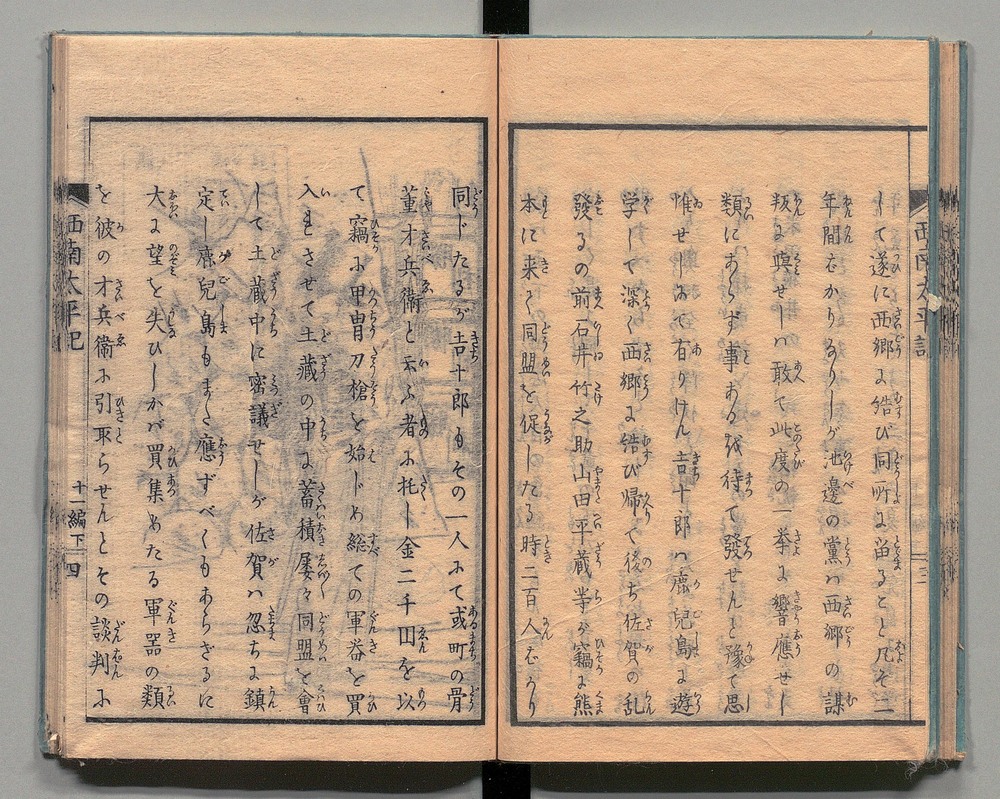 して遂に西郷に結び同所に留ること凡そ二
年間むかりなりしが池邊の黨ハ西郷の謀
叛に與せしハ敢て此度の一挙に響應せし
類にあらず事ある我待て發せんと豫て思
惟せしみて有りけん吉十郎ハ鹿児島に遊
学して深く西郷に結び帰て後ち佐賀の乱
發るの前石井竹之助山田平蔵等が竊に熊
本に来て同盟を促したる時二百人むかり
同じたるが吉十郎もその一人にて或町の骨
董才兵衛と云ふ者に托し金二千円を以
て竊に甲冑刀槍を始じめ総ての軍器を買
入れさせて土藏の中に蓄積屡々同盟を會
して土蔵中に密議せしが佐賀ハ忽ちに鎮
定し鹿兒島もまた應ずべくもあらざるに
大に望を失ひしかバ買集めたる軍器の類
を彼の才兵衛に引取らせんとその談判に
西南太平記
十一編下
四